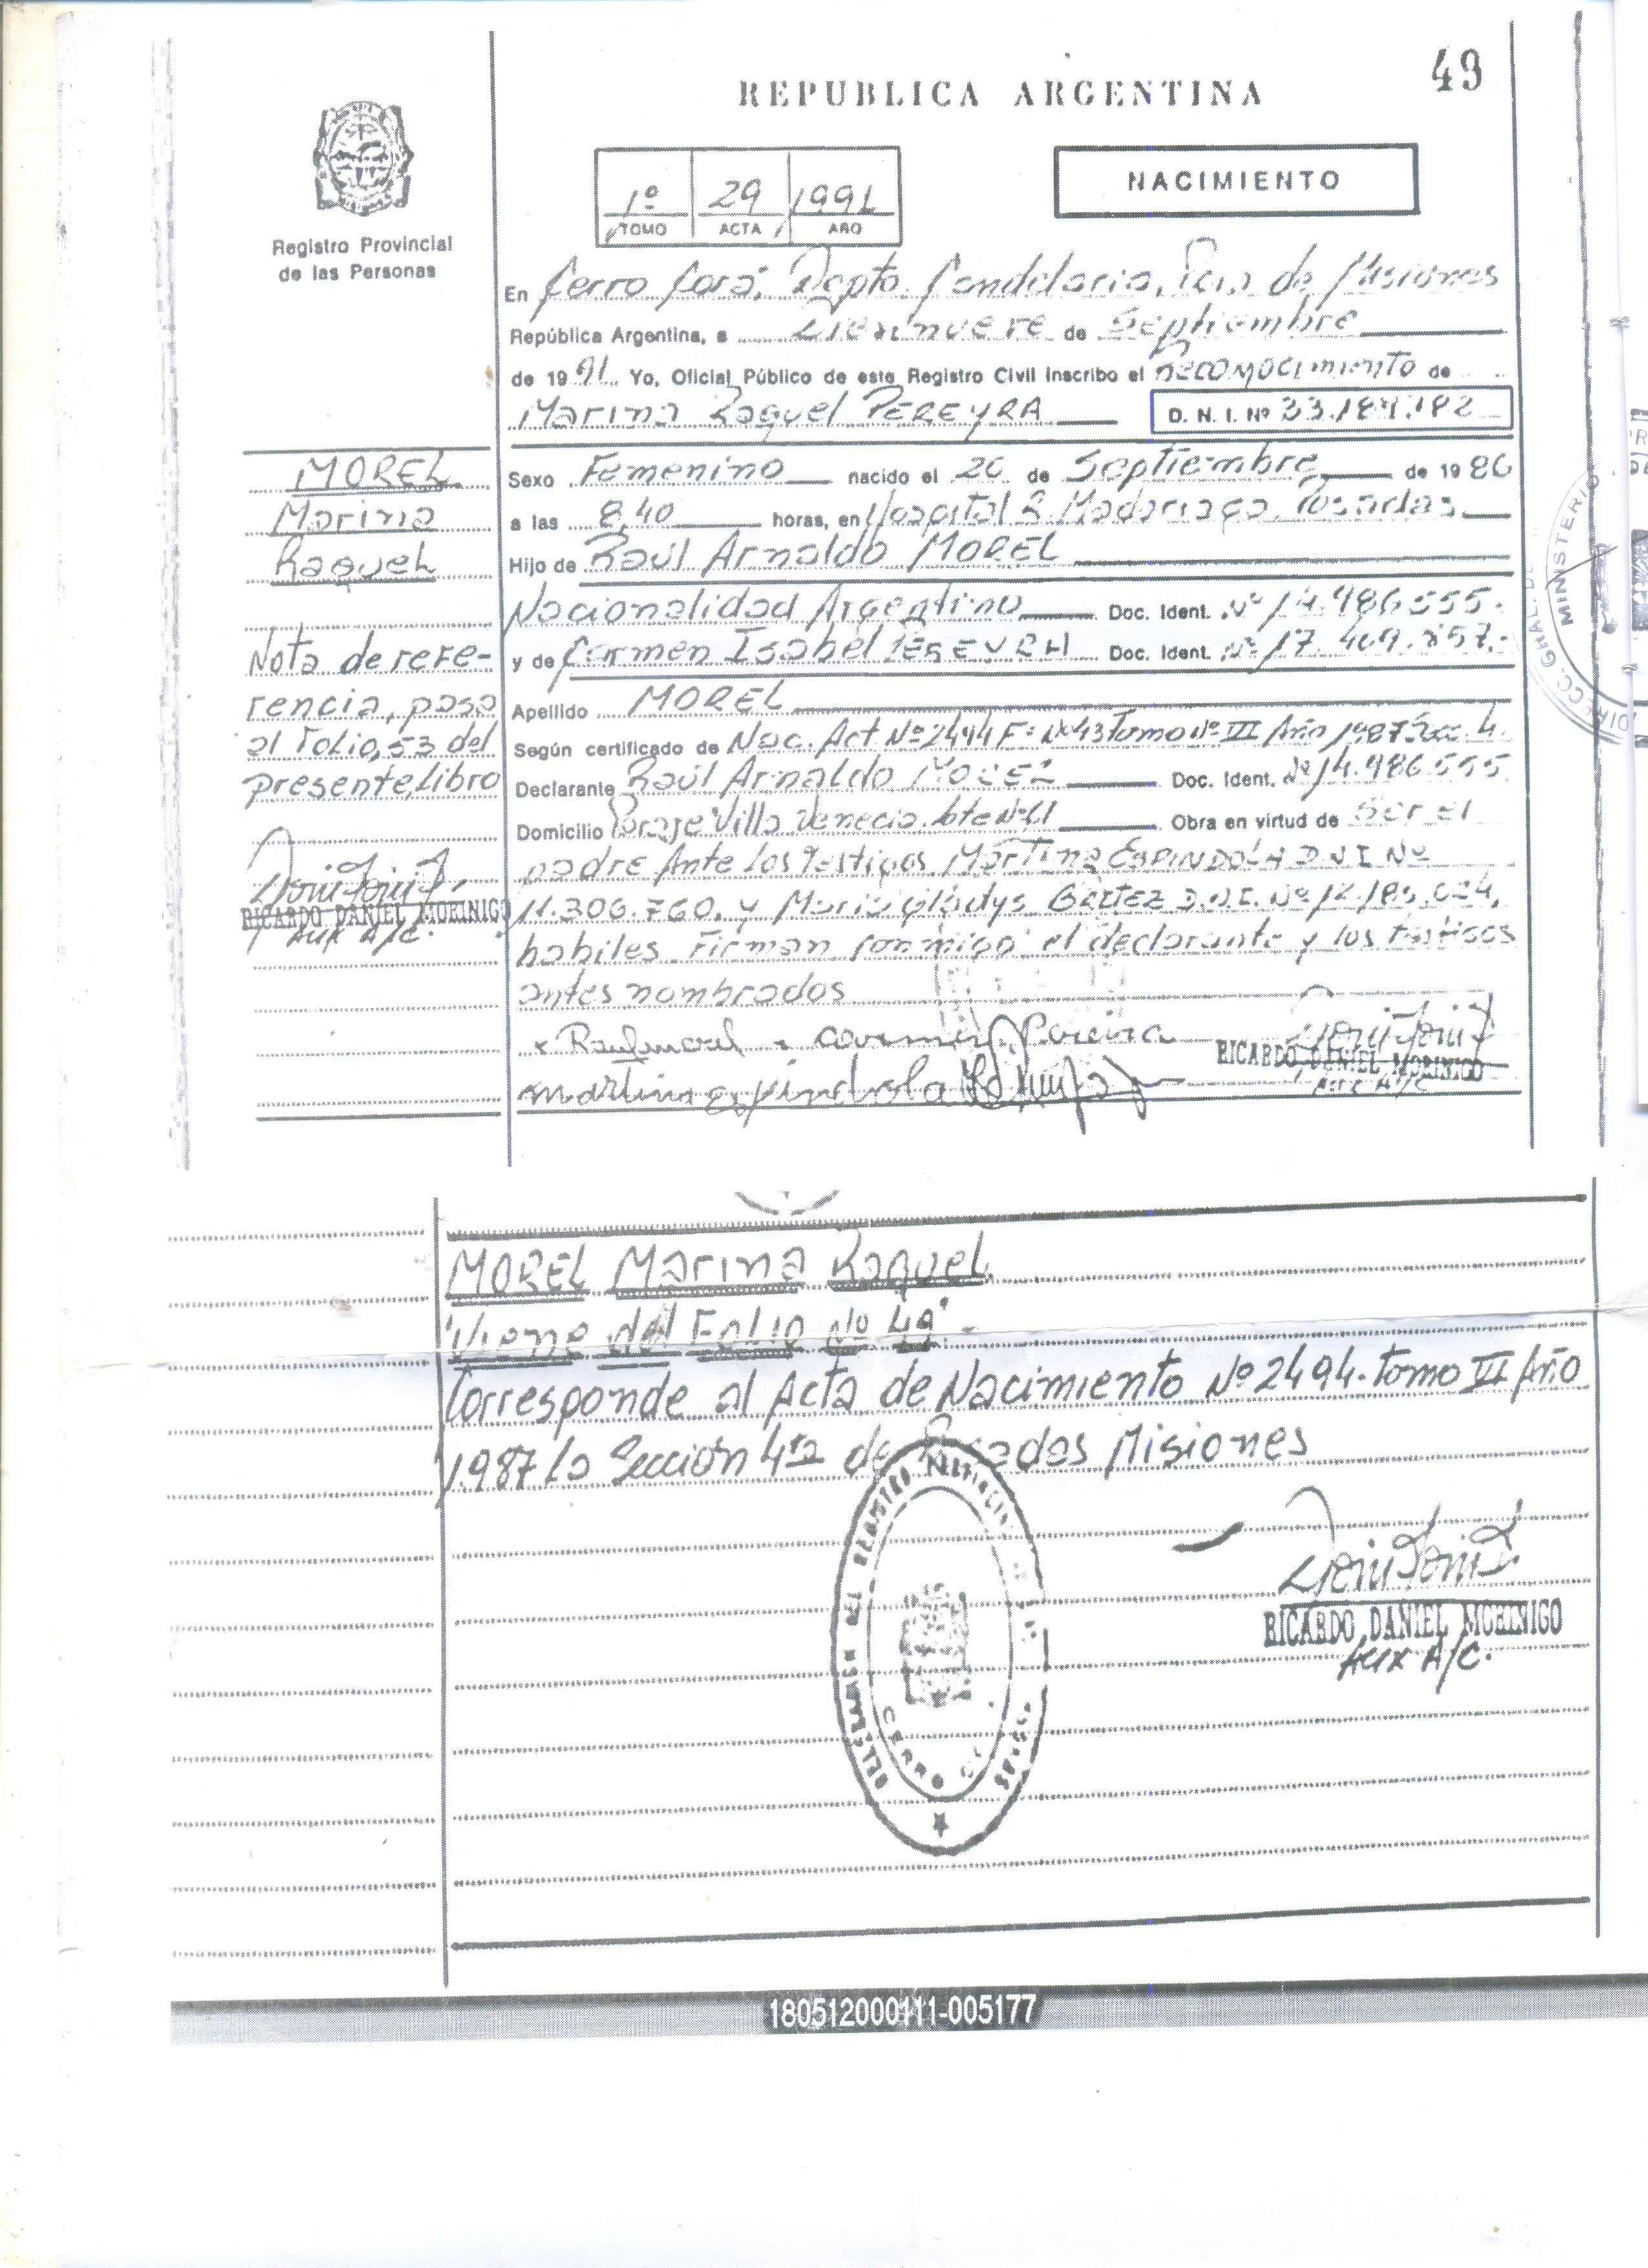 49
REPUBLICA ARGENTINA
1º 29 1991
TOMO ACTA AÑO
NACIMIENTO
Registro Provincial
de las Personas
En Cerro Corá, Depto. Candelaria, Pcia de Misiones
República Argentina, a Diecinueve de Septiembre
de 1991 Yo, Oficial Público de este Registro Civil inscribo el Reconocimiento de
Marina Raquel PEREYRA D. N. I. Nº 33.189.182
MOREL
Marina
Raquel
Sexo Femenino nacido el 26 de Septiembre de 1986
a las 8,40 horas, en Hospital R. Madariaga Posadas
Hijo de Raúl Arnaldo MOREL
Nacionalidad Argentino Doc. Ident. Nº 14.986.555.
y de Carmen Isabel PEREYRA Doc. Ident. Nº 17.409.857.
Apellido MOREL
Según certificado de Nac. Act Nº 2494 Fº Nº 43 Tomo Nº VII Año 1987 Secc. 4.
Declarante Raúl Arnaldo MOREL Doc. Ident. Nº 14.986.555
Domicilio Paraje Villa Venecia. lote Nº 61 Obra en virtud de Ser el
padre Ante los testigos Martina ESPINDOLA D.N.I Nº
11.306.760. y María Gladys D.N.I. Nº 12.189.024,
habiles Firman conmigo el declarante y los testigos
antes nombrados
Nota de refe-
rencia, pasa
al Folio, 53 del
presente, libro
RICARDO DANIEL MORINIGO
Aux A/C.
Raul morel Carmen Pereira
martina espindola
RICARDO DANIEL MORINIGO
Aux A/C
DIRECC. GRAL. DE
MINISTERIO
MOREL Marina Raquel
"Viene del Folio Nº 49"
Corresponde al Acta de Nacimiento Nº 2494. tomo VII Año
1.987 la Sección 4ta de Posadas Misiones
DEL REGISTRO
CERRO
RICARDO DANIEL MORINIGO
Aux A/C.
180512000111-005177